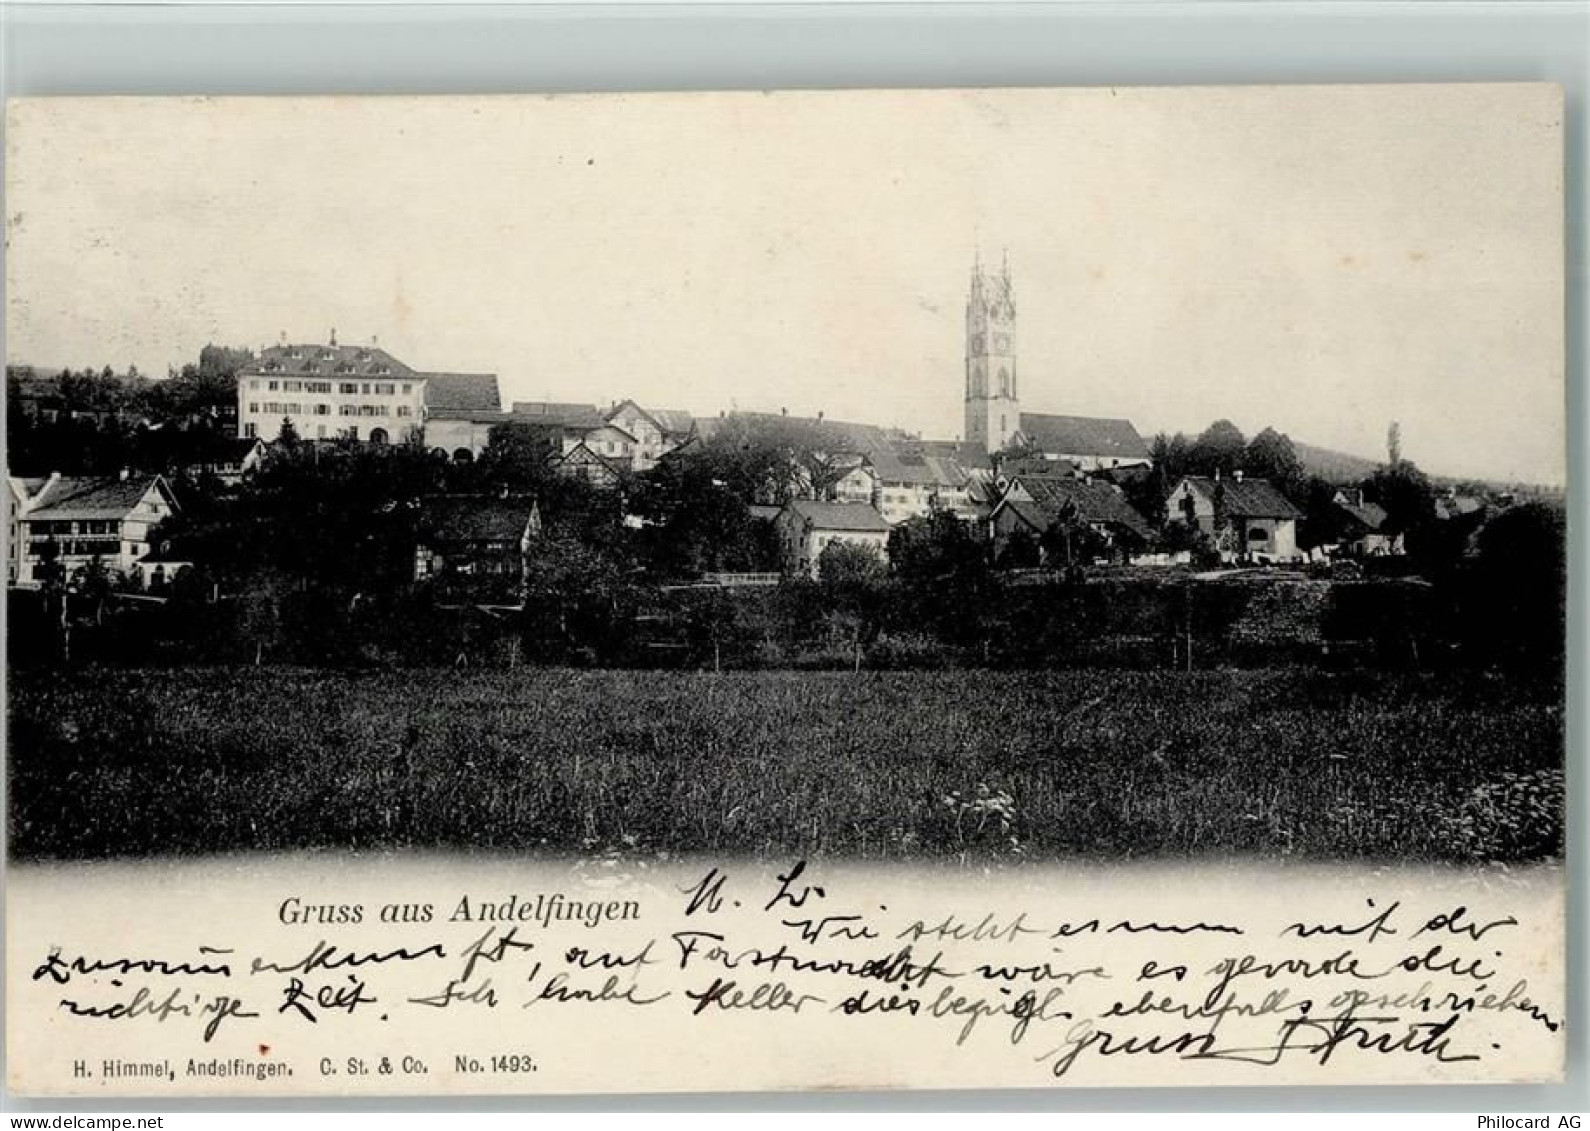 Gruss aus Andelfingen M. L.
Wie steht es nun mit der
Zusammenkunft, auf Fastnacht wäre es gerade die
richtige Zeit. Ich habe Keller diesbezügl. ebenfalls geschrieben
Gruss
H. Himmel, Andelfingen. C. St. & Co. No. 1493.
www.delcampe.net
Philocard AG